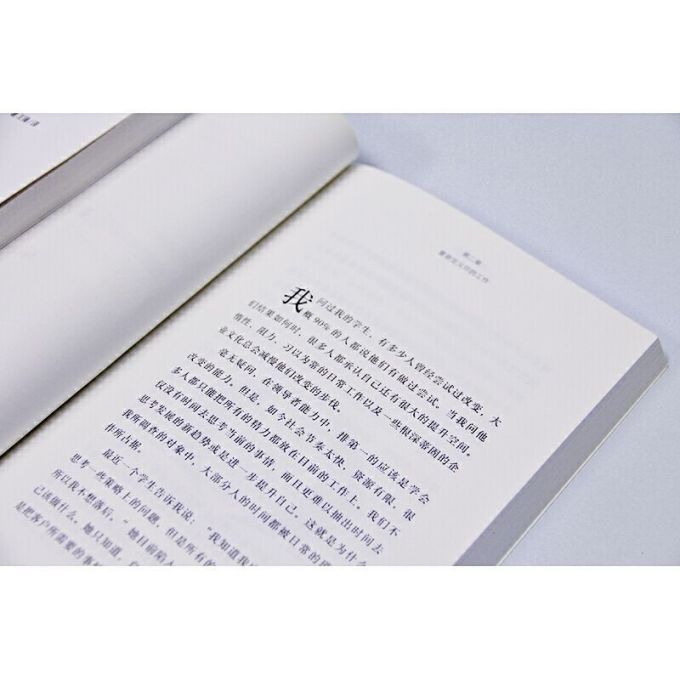 第二章
重新定义你的工作
我问过我的学生，有多少人曾经尝试过改变，大
概90%的人都说他们有做过尝试。当我问他
们结果如何时，很多人都承认自己还有很大的提升空间。
惰性、阻力、习以为常的日常工作以及一些根深蒂固的企
业文化总会减慢他们改变的步伐。
毫无疑问，在领导者能力中，推第一的应该是学会
改变的能力。但是，如今社会节奏太快，资源有限，很
多人都只能把所有的精力都放在目前的工作上。我们不
仅没有时间去思考当前的事情，而且更难以抽出时间去
思考发展的新趋势或是进一步提升自己。这就是为什么
我所调查的对象中，大部分人的时间都被日常的
作所占据。
最近一个学生告诉我说：“我知道我
思考一些策略上的问题，但是所有的
所以我不想落后。”她目前陷入
己该做什么，她只知道，
是把客户所需要的事